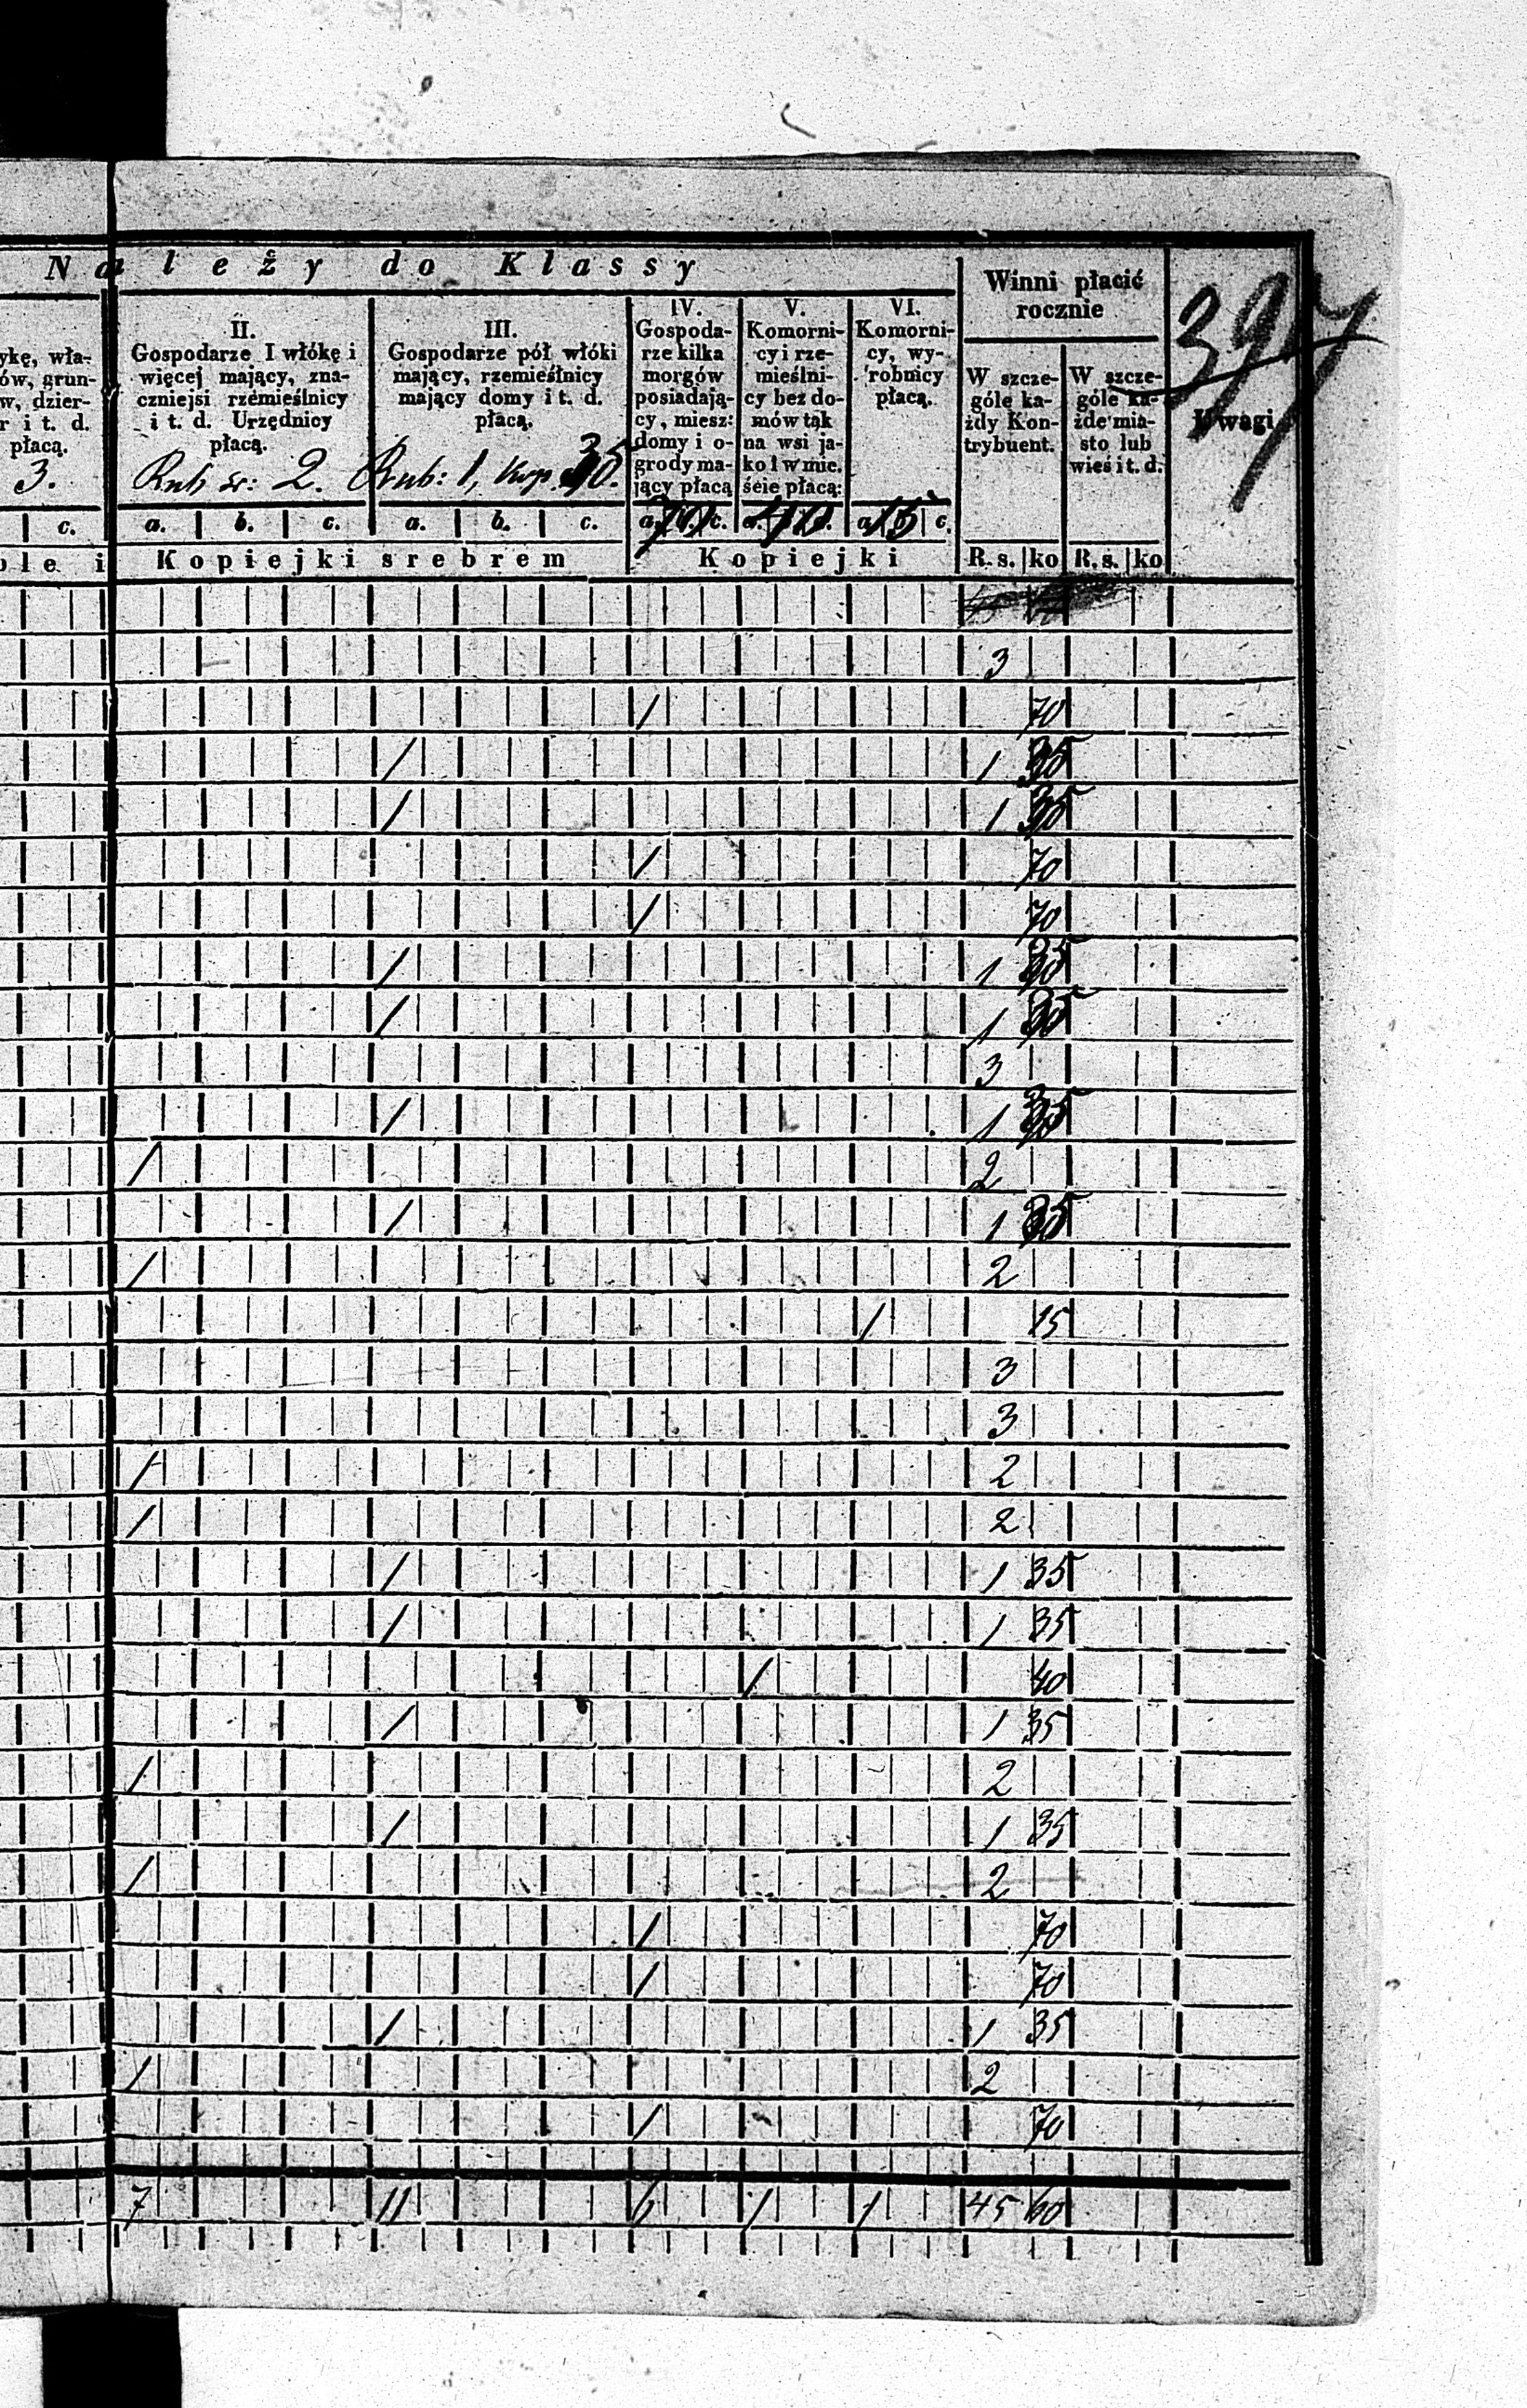 397
Należy do Klassy
Winni płacić
rocznie
Uwagi
ykę, wła-
ów, grun-
w, dzier-
r i t. d.
płacą.
3.
c.
II.
Gospodarze I włókę i
więcej mający, zna-
czniejsi rzemieślnicy
i t. d. Urzędnicy
płacą.
Rub sr: 2.
a. b. c.
III.
Gospodarze pół włóki
mający, rzemieślnicy
mający domy i t. d.
płacą.
Rub: 1, kop. 35.
a. b. c.
IV.
Gospoda-
rze kilka
morgów
posiadają-
cy, miesz:
domy i o-
grody ma-
jący płacą
70
a. b. c.
V.
Komorni-
cy i rze-
mieślni-
cy bez do-
mów tak
na wsi ja-
ko i w mie.
ście płacą:
40
VI.
Komorni-
cy, wy-
robnicy
płacą.
15
a. c.
W szcze-
góle ka-
żdy Kon-
trybuent.
W szcze-
góle ka-
żde mia-
sto lub
wieś i t. d.
ole i
Kopiejki srebrem
Kopiejki
R. s. ko R. s. ko
3
/ 70
/ 1 35
/ 1 35
/ 70
/ 70
/ 1 35
/ 1 35
3
/ 1 35
/ 2
/ 1 35
/ 2
/ 15
3
3
/ 2
/ 2
/ 1 35
/ 1 35
/ 40
/ 1 35
/ 2
/ 1 35
/ 2
/ 70
/ 70
/ 1 35
/ 2
/ 70
7 11 6 1 1 45 60